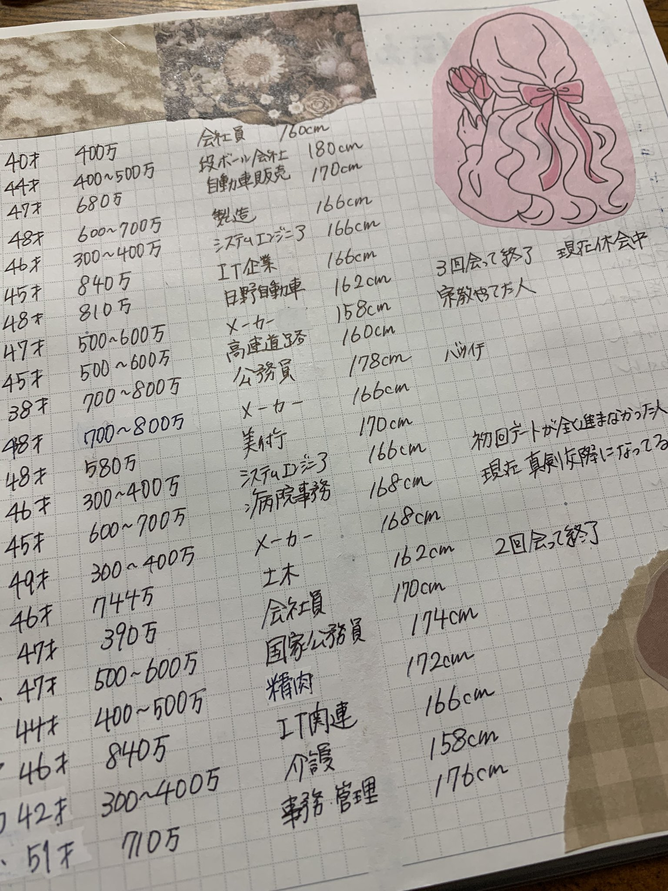 40才 400万 会社員 160cm
44才 400~500万 段ボール会社 180cm
47才 680万 自動車販売 170cm
48才 600~700万 製造 166cm
46才 300~400万 システムエンジニア 166cm
45才 840万 IT企業 166cm
48才 810万 日野自動車 162cm 3回会って終了 現在休会中
47才 500~600万 メーカー 158cm 宗教やてた人
45才 500~600万 高速道路 160cm
38才 700~800万 公務員 178cm バツイチ
48才 700~800万 メーカー 166cm
48才 580万 170cm
46才 300~400万 システムエンジニア 166cm 初回デートが全く進まなかった人
45才 600~700万 病院事務 168cm 現在真剣交際になってる
49才 300~400万 メーカー 168cm
46才 744万 土木 162cm 2回会って終了
47才 390万 会社員 170cm
47才 500~600万 国家公務員 174cm
44才 400~500万 精肉 172cm
46才 840万 IT関連 166cm
42才 300~400万 介護 158cm
51才 710万 事務・管理 176cm